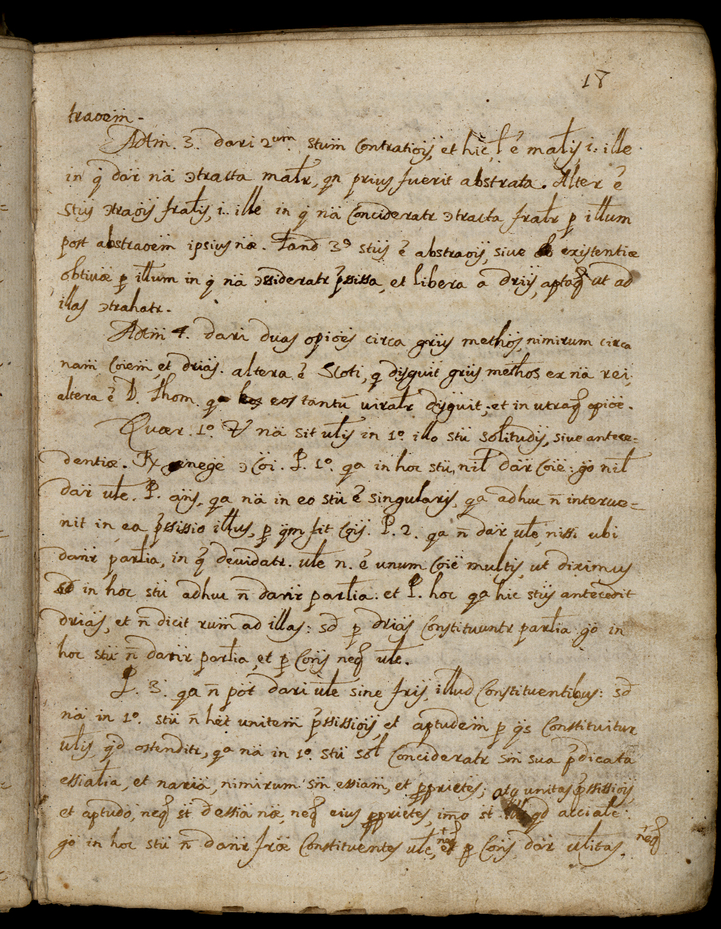 18
traoem̃.
Adtm̃. 3. dari 2um. stum̃ Contratiois, et hic ł ẽ malis i. ille
in q̃ dar̃ nã ɔtracta malr̃, qñ prius fuerit abstrata. Alter ẽ
Stus ɔtraois fralis, i. ille in q̃ nã Concideratr ɔtracta fralr p illum
post abstraoem̃ ipsius næ. Tand 3º stus ẽ abstraois, sive existentiæ
obtivæ p illum in q̃ nã ɔssideratr p̃ssissa, et libera a driis, aptaq̃ ut ad
illas ɔtrahatr.
Adtm̃ 4. dari duas opioẽs circa griis methos nimirum circa
nam̃ Coiem̃ et drias. altera ẽ Scoti, q̃ disguit griis methos ex nã rei,
altera ẽ D. Thom. q̃ eos tantũ viralr disguit, et in utraq̃ opioẽ.
Quær. 1º. V nã sit ulis in 1º. illo stũ solitudis, sive antece=
dentiæ. R. enege ɔ Coi. P. 1º. qa in hoc stũ, nil dar̃ Coiẽ: g̃o nil
dar̃ ule. P. añs, qa nã in eo stũ ẽ singularis, qa adhuc ñ interve=
nit in ea p̃ssissio illus, p q̃m fit Cois. P. 2. qa ñ dar̃ ule, nissi ubi
danr̃ parlia, in q̃ devidatr. ule n. ẽ unum Coiẽ multis, ut diximus
sd in hoc stũ adhuc ñ danr̃ parlia: et P. hoc qa hic stus antecedit
drias, et ñ dicit rum̃ ad illas: sd p drias Constituuntr parlia: g̃o in
hoc stũ ñ danr̃ parlia, et p Cons neq̃ ule.
P. 3. qa ñ pot̃ dari ule sine friis illud Constituentibus: sd
nã in 1º. stũ ñ het̃ unitem̃ p̃ssissiois et aptudem̃ p q̃s Constituitur
ulis qd ostenditr, qa nã in 1º. stũ sol Concideratr sm̃ sua p̃dicata
essialia, et naria, nimirum sm̃ essiam̃, et pprietes; atq̃ unitas p̃ssissiois
et aptudo, neq̃ st d essia næ, neq̃ eius pprietes, imo st qd acciale:
g̃o in hoc stũ ñ danr̃ fræ Constituentes ule, neq̃ p Cons dar̃ ulitas. neq̃